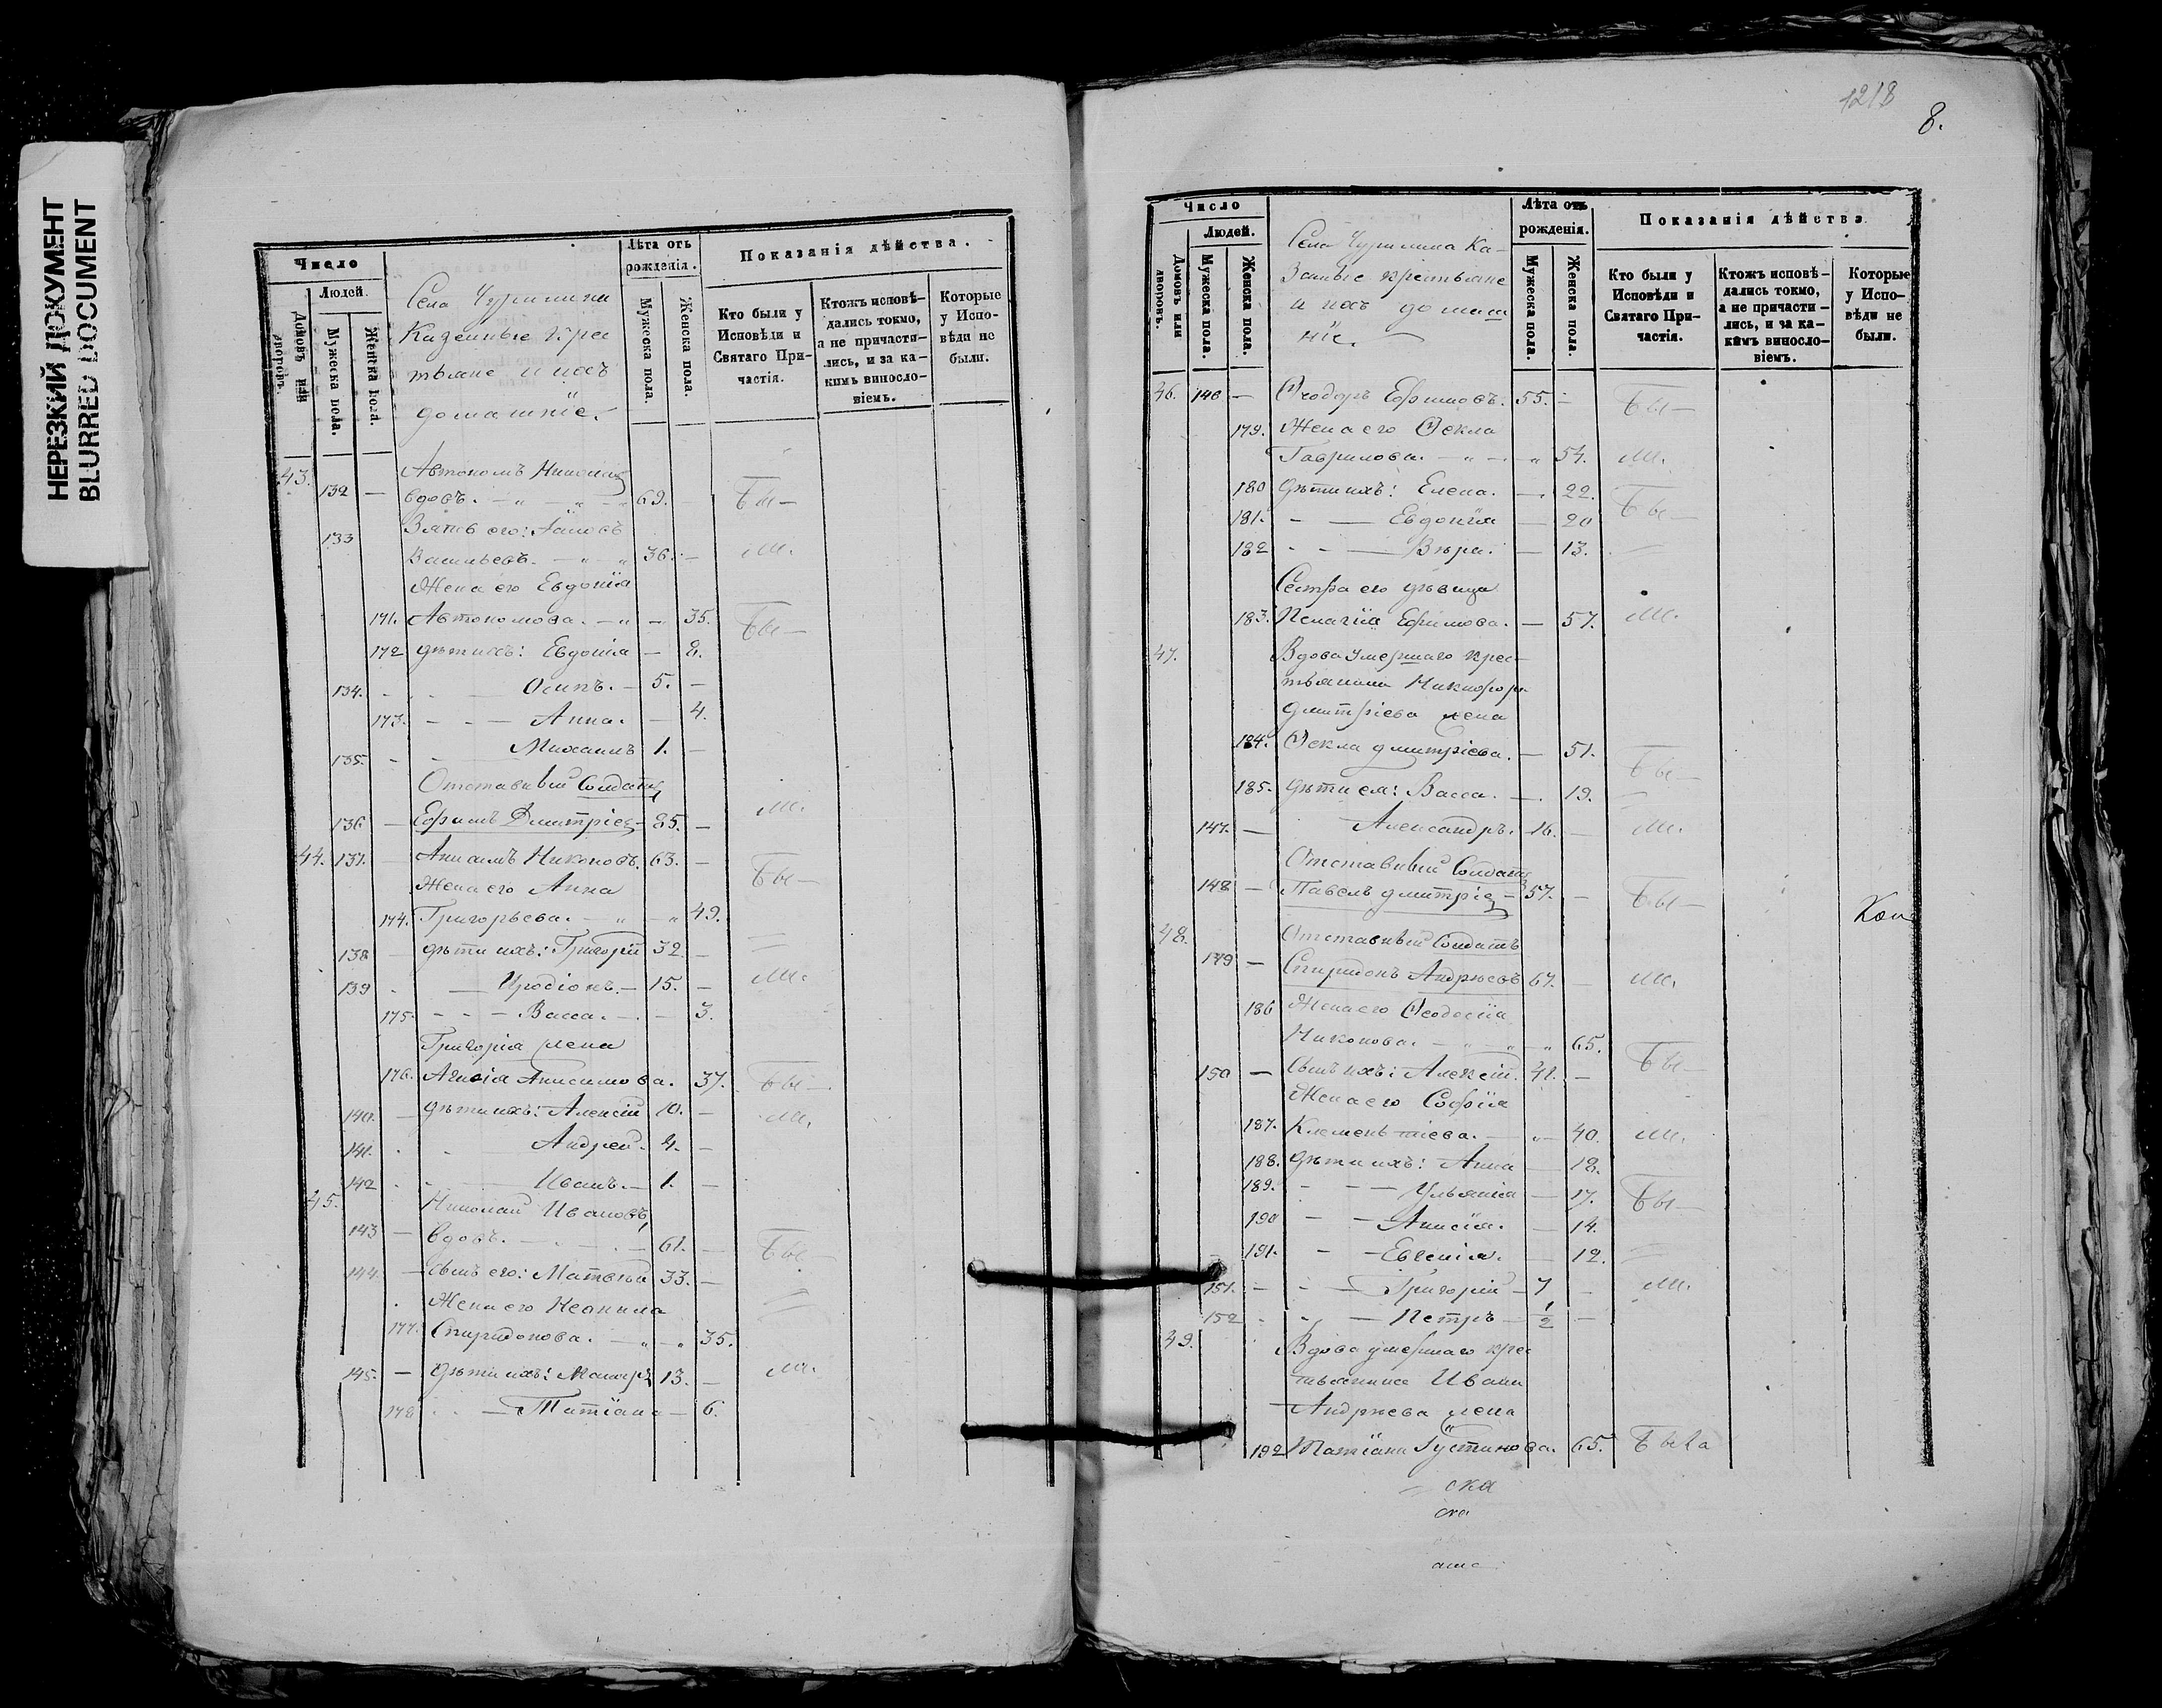 НЕРЕЗКИЙ ДОКУМЕНТ
BLURRED DOCUMENT
Число
Людей.
Домовъ или дворовъ.
Мужеска пола.
Женска пола.
Села Чурилина
Казенные крес
тьяне и ихъ
домашніе.
Лѣта отъ рожденія.
Мужеска пола.
Женска пола.
Показанія дѣйства.
Кто были у Исповѣди и Святаго Причастія.
Ктожъ исповѣдались токмо, а не причастились, и за какимъ винословіемъ.
Которые у Исповѣди не были.
43. Автономъ Николаевъ
132 — вдовъ. 69. — Бы—
Зять его:
133 Васильевъ. 36. — ли.
Жена его Евдокія
171. Автономова. — 35. Бы—
172 дѣти ихъ: Евдокія — 8.
134. Осипъ. — 5. —
173. — Анна. — 4.
135. Михаилъ 1. —
Отставный Солдатъ
136 — Ефимъ Дмитріев 85. — ли.
44. 137. — Никоновъ. 63. — Бы—
Жена его Анна
174. Григорьева. — 49.
138 — дѣти ихъ: Григорій 32. —
139 — Иродіонъ. — 15. — ли.
175. — Васса. — 3.
Григорія жена
176. Анисимова. 37. Бы—
140. — дѣти ихъ: Алексій 10. — ли.
141. Андрей. 4. —
142 Иванъ. — 1. —
45. Николай Ивановъ
143 — вдовъ. 61. — Бы—
144. — сынъ его: Матвѣй 33. —
Жена его Неонила
177. Спиридонова. — 35.
145. — дѣти ихъ: Макаръ 13. — ли.
178 — Татіана — 6.
1218
8.
Число
Людей.
Домовъ или дворовъ.
Мужеска пола.
Женска пола.
Села Чурилина Ка-
занные крестьяне
и ихъ домаш
ніе.
Лѣта отъ рожденія.
Мужеска пола.
Женска пола.
Показанія дѣйства
Кто были у Исповѣди и Святаго Причастія.
Ктожъ исповѣдались токмо, а не причастились, и за какимъ винословіемъ.
Которые у Исповѣди не были.
46. 146 — Ѳеодоръ Ефимовъ. 55. — Бы—
179. Жена его Ѳекла
Гаврилова. — 54. ли.
180 дѣти ихъ: Елена. — 22. Бы—
181. — Евдокія — 20
182 — Вѣра. — 13.
Сестра его дѣвица
183. Пелагія Ефимова. — 57. ли.
47. Вдова умершаго крес-
тьянина Никифора
Дмитріева жена
184. Ѳекла Дмитріева. — 51. Бы—
185. дѣти ея: Васса. — 19.
147. — Александръ. 16. — ли.
Отставный Солдатъ
148 — Павелъ Дмитріев 57. — Бы—
48. Отставный Солдатъ
149 — Спиридонъ Андреевъ 67. — ли.
186 Жена его Ѳеодосія
Никонова. — 65. Бы—
150 — сынъ ихъ: Алексій. 41. —
Жена его Софія
187. Клементіева. — 40. ли.
188. дѣти ихъ: Анна — 18.
189. — Ульянія — 17. Бы—
190 — Анисія. — 14.
191. — Евгенія. — 12.
151. — Григорій — 7 — ли.
152 — Петръ — 1/2 —
49. Вдова умершаго крес
тьянина Ивана
Андреева жена
192 Татіана Іустинова. 65. Была